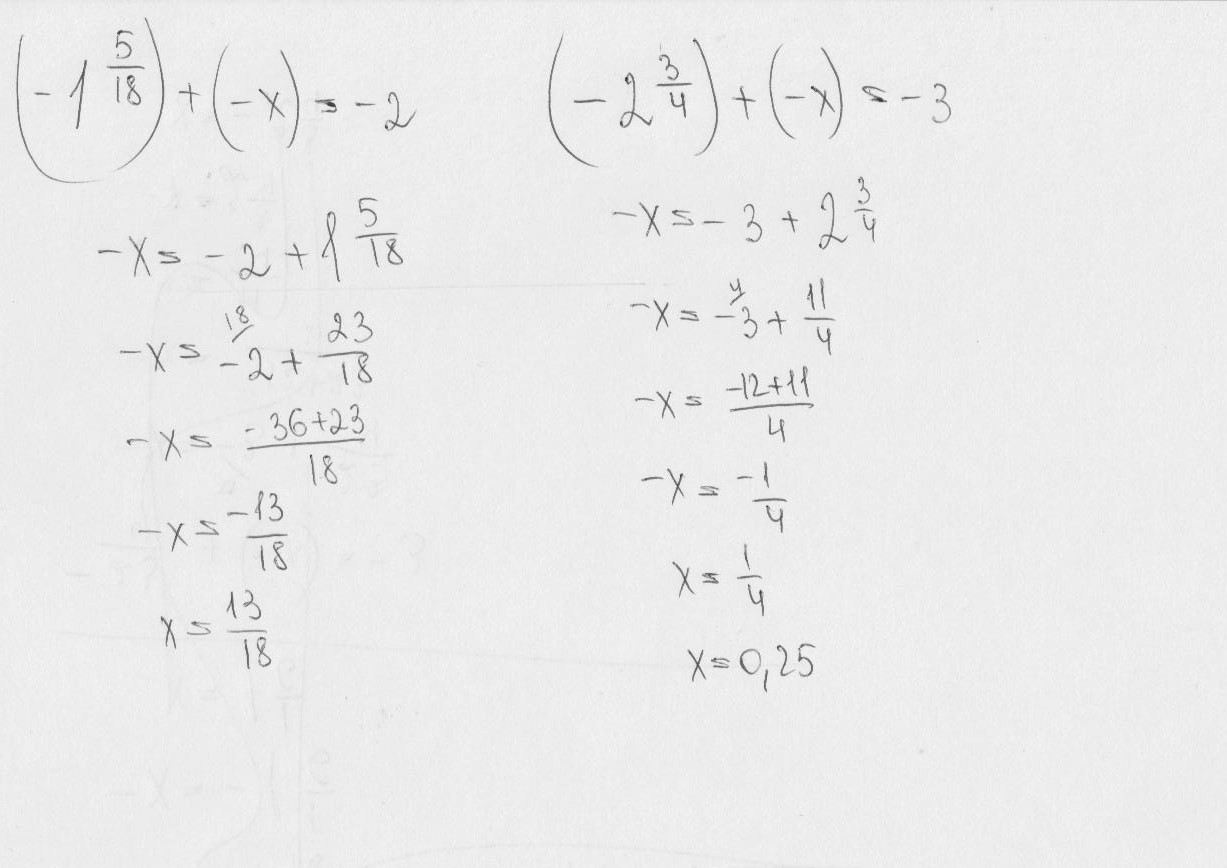 (-1 5/18) + (-x) = -2
-x = -2 + 1 5/18
18/
-x = -2 + 23/18
-x = -36+23/18
-x = -13/18
x = 13/18
(-2 3/4) + (-x) = -3
-x = -3 + 2 3/4
4/
-x = -3 + 11/4
-x = -12+11/4
-x = -1/4
x = 1/4
x = 0,25